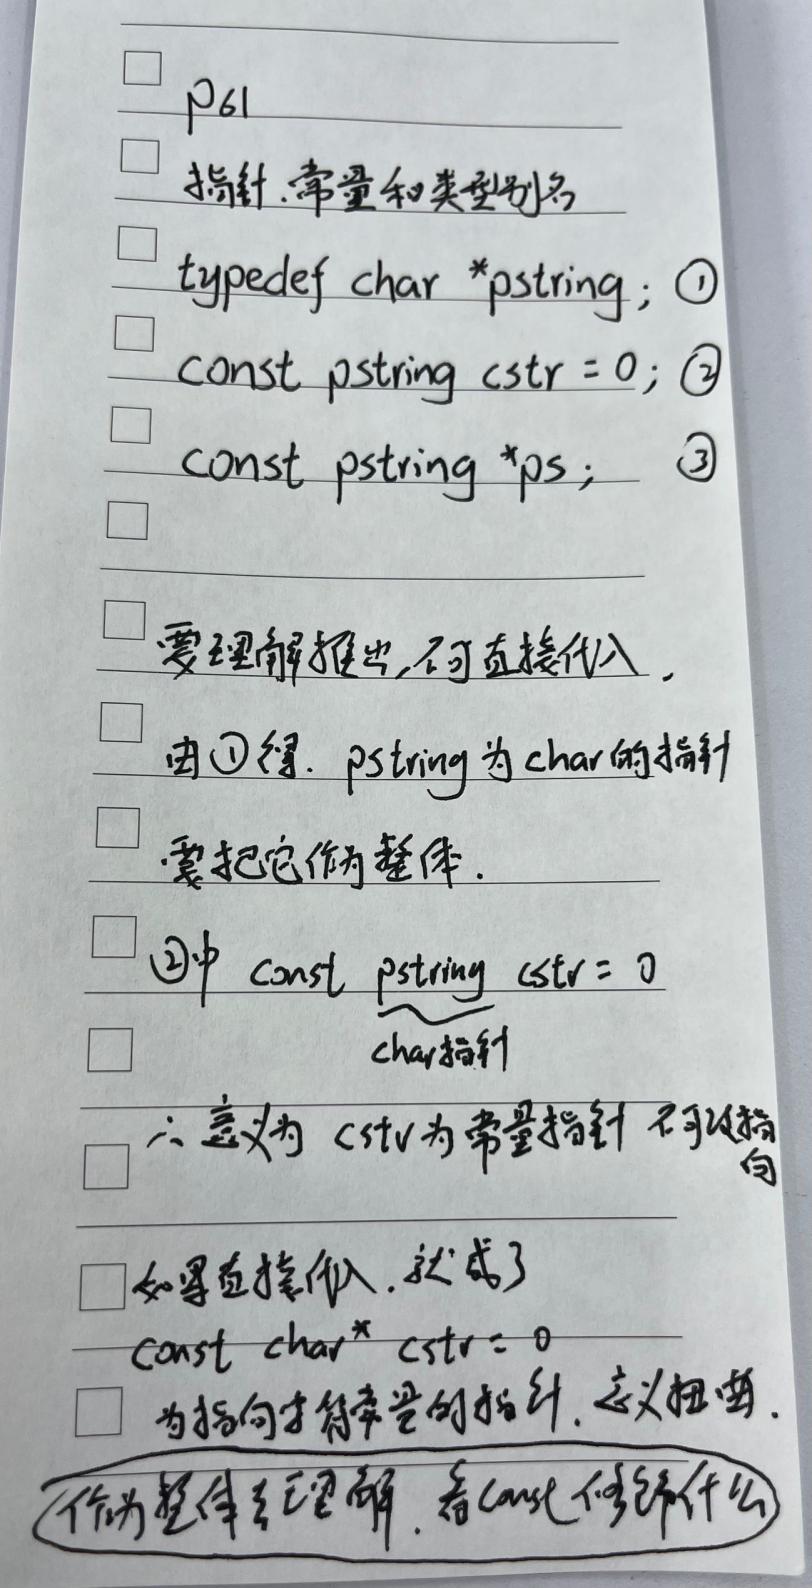 P61
指针、常量和类型别名
typedef char *pstring; ①
const pstring cstr = 0; ②
const pstring *ps; ③
要理解推出,不可直接代入,
由①得. pstring 为 char 的指针
要把它作为整体.
②中 const pstring cstr = 0
char指针
∴ 意义为 cstr为常量指针 不可改指向
如果直接代入.就成了
const char* cstr = 0
为指向字符常量的指针.意义扭曲.
作为整体去理解.看const修饰什么